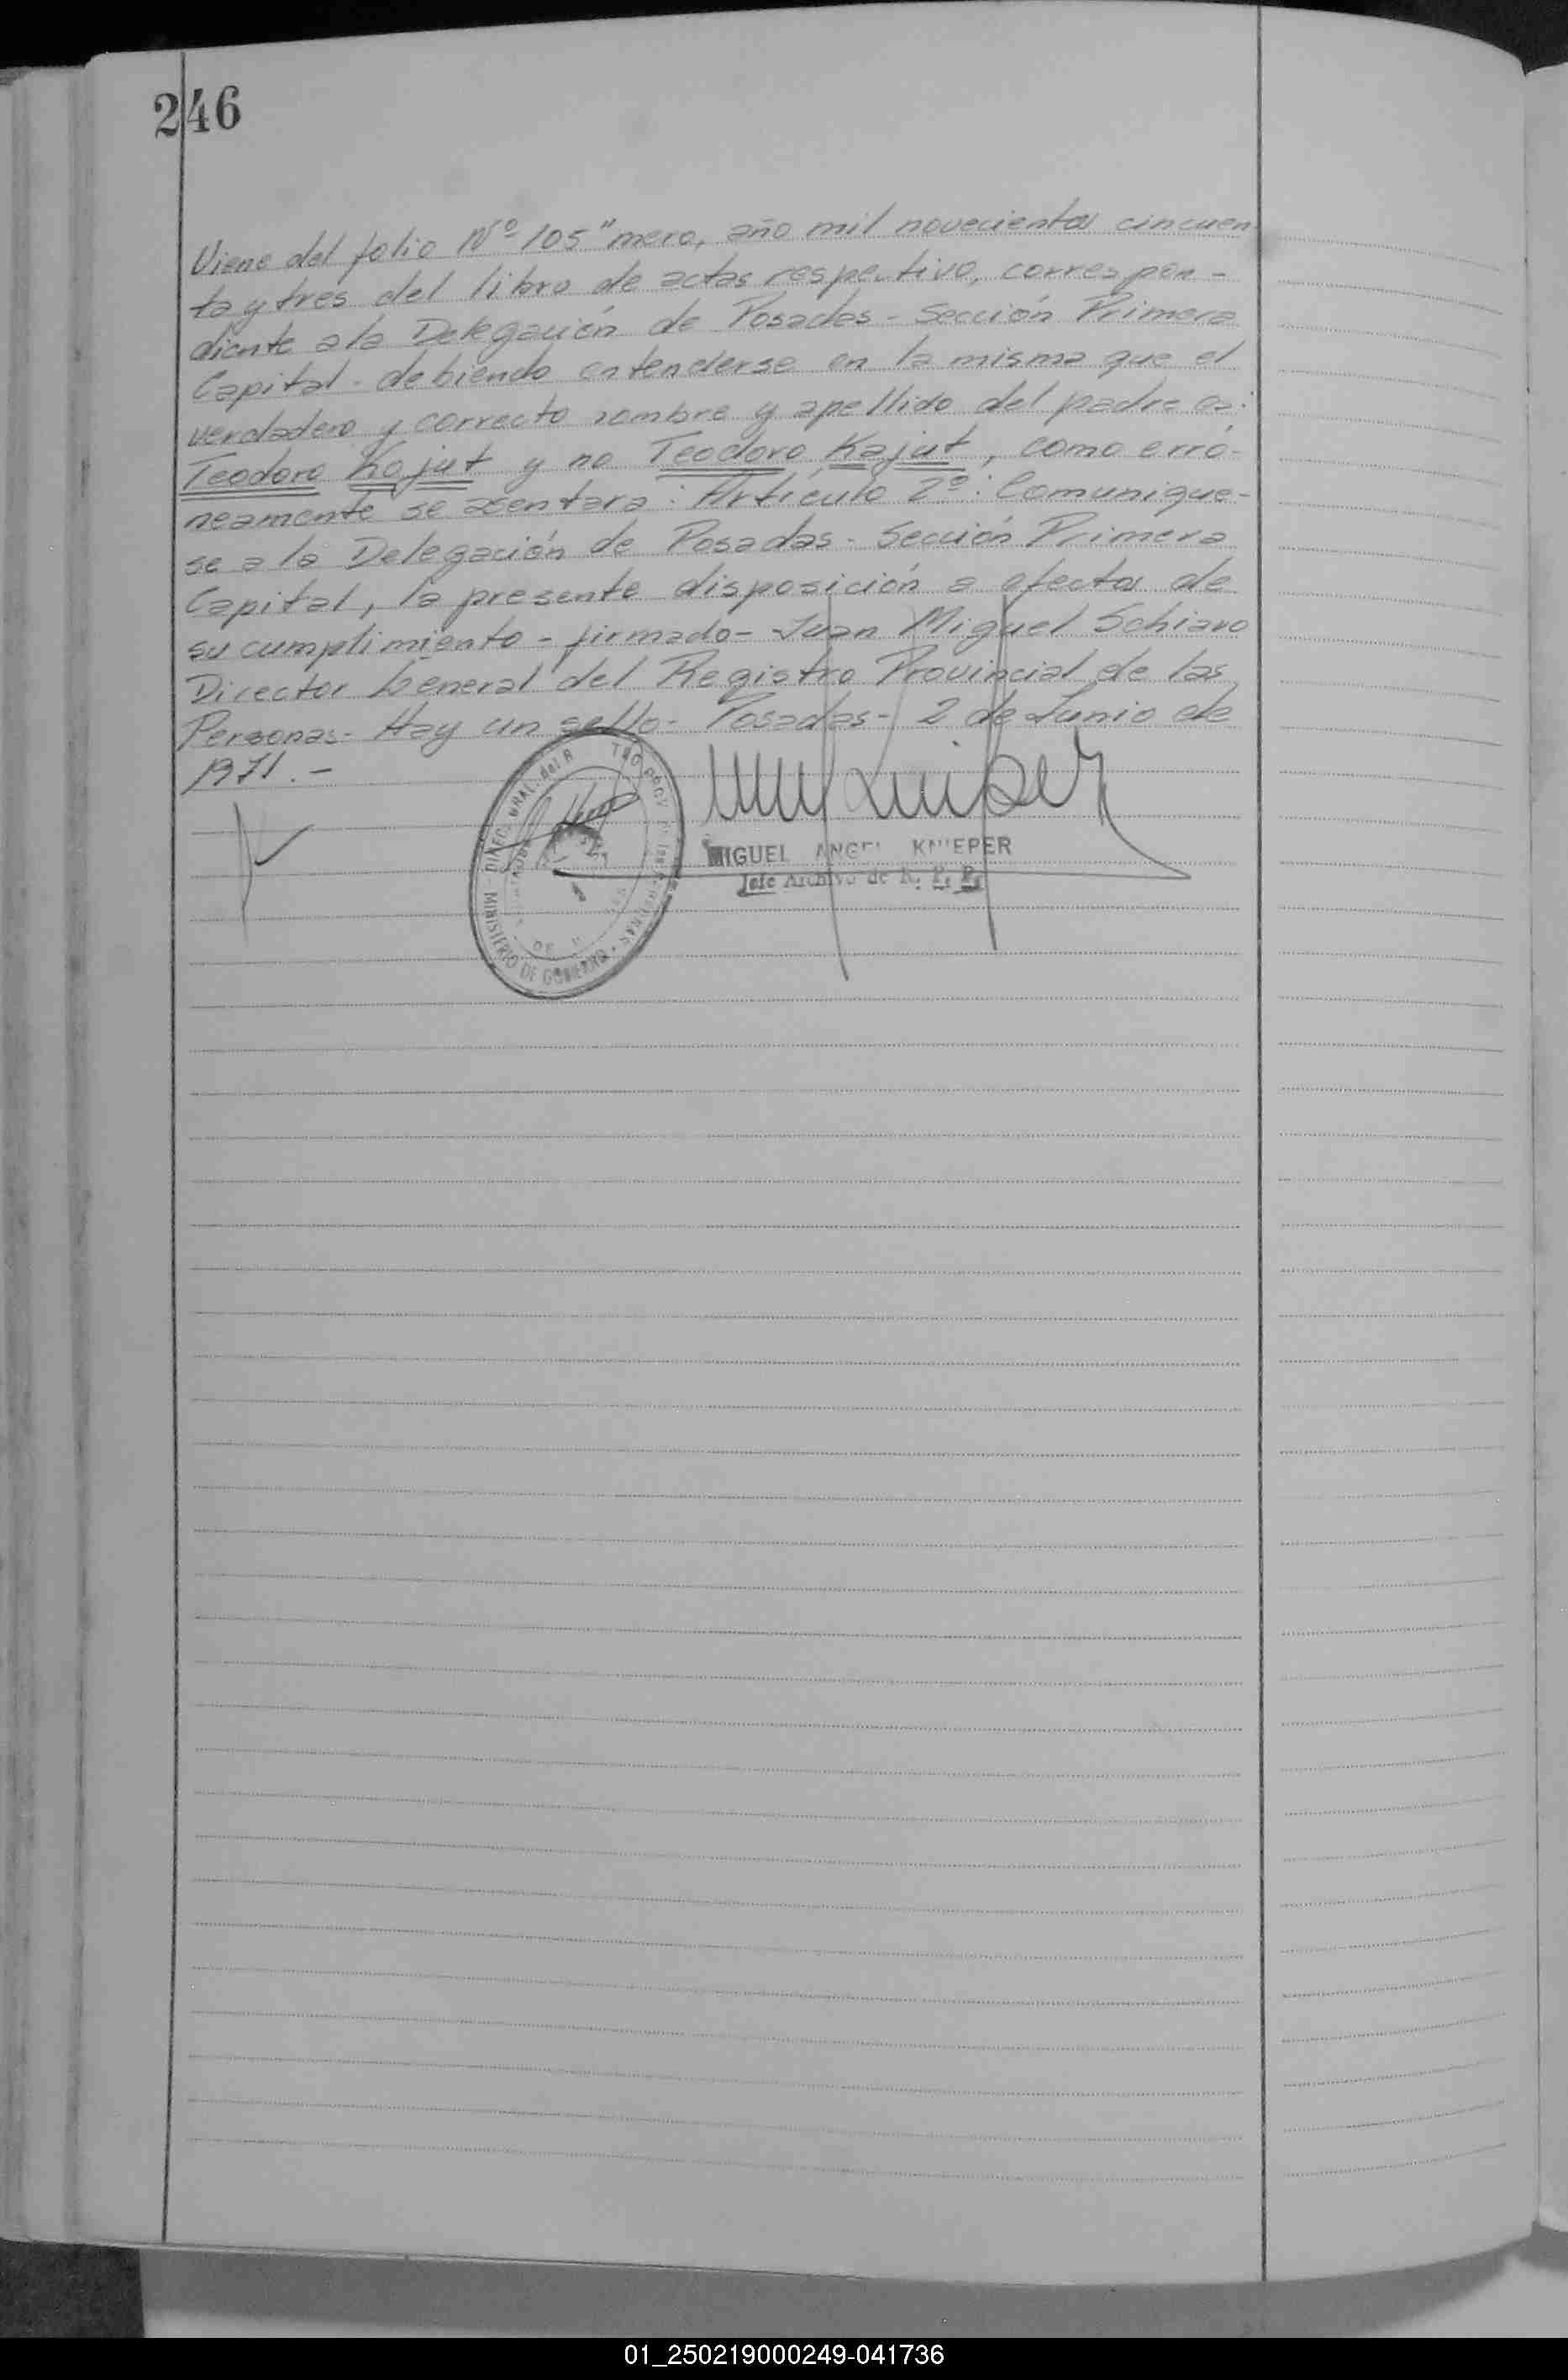 246
Viene del folio Nº 105 "mero, año mil novecientos cincuen
ta y tres del libro de actas respectivo, correspon-
diente a la Delegación de Posadas - Sección Primera
Capital - debiendo entenderse en la misma que el
verdadero y correcto nombre y apellido del padre es:
Teodoro Kojut y no Teodoro Kajut, como erró-
neamente se asentara: Artículo 2º: Comunique-
se a la Delegación de Posadas - Sección Primera
Capital, la presente disposición a efectos de
su cumplimiento - firmado - Juan Miguel Schiavo
Director General del Registro Provincial de las
Personas - Hay un sello - Posadas - 2 de Junio de
1971.-
MIGUEL ANGEL KNIEPER
Jefe Archivo de R. P. P.
MINISTERIO DE GOBIERNO
01_250219000249-041736